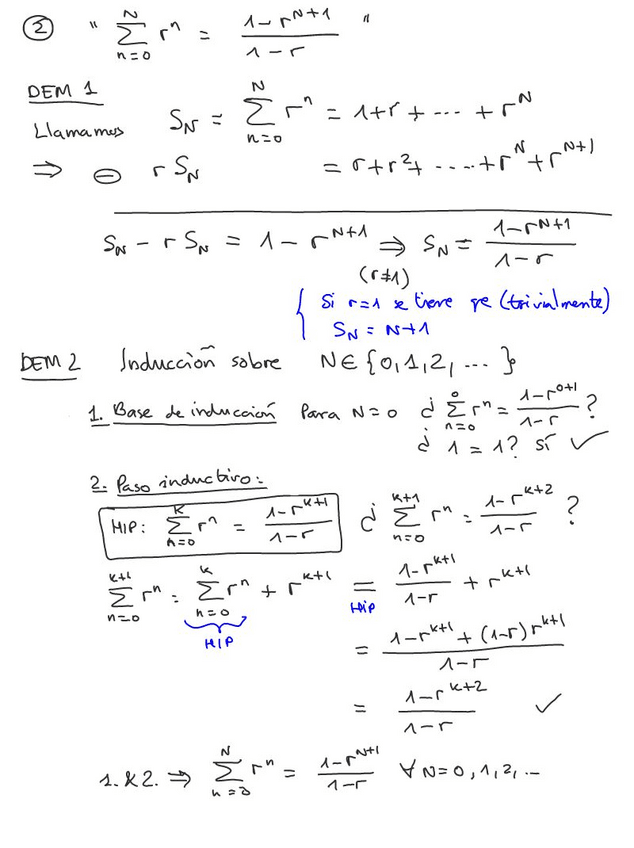 ② " ∑_{n=0}^{N} r^n = (1-r^{N+1})/(1-r) "
DEM 1
Llamamos S_N = ∑_{n=0}^{N} r^n = 1+r+ ---- + r^N
⇒ ⊖ r S_N = r+r^2+ ---- +r^N+r^{N+1}
S_N - r S_N = 1 - r^{N+1} ⇒ S_N = (1-r^{N+1})/(1-r)
(r≠1)
{ Si r=1 se tiene qe (trivialmente)
S_N = N+1
DEM 2 Inducción sobre N∈{0,1,2,---}
1. Base de inducción Para N=0 ¿ ∑_{n=0}^{0} r^n = (1-r^{0+1})/(1-r) ?
¿ 1 = 1? SÍ ✓
2. Paso inductivo:
HIP: ∑_{n=0}^{k} r^n = (1-r^{k+1})/(1-r) ¿ ∑_{n=0}^{k+1} r^n = (1-r^{k+2})/(1-r) ?
∑_{n=0}^{k+1} r^n = ∑_{n=0}^{k} r^n + r^{k+1} = (1-r^{k+1})/(1-r) + r^{k+1}
HIP HIP
= (1-r^{k+1}+(1-r)r^{k+1})/(1-r)
= (1-r^{k+2})/(1-r) ✓
1. & 2. ⇒ ∑_{n=0}^{N} r^n = (1-r^{N+1})/(1-r) ∀ N=0,1,2,--